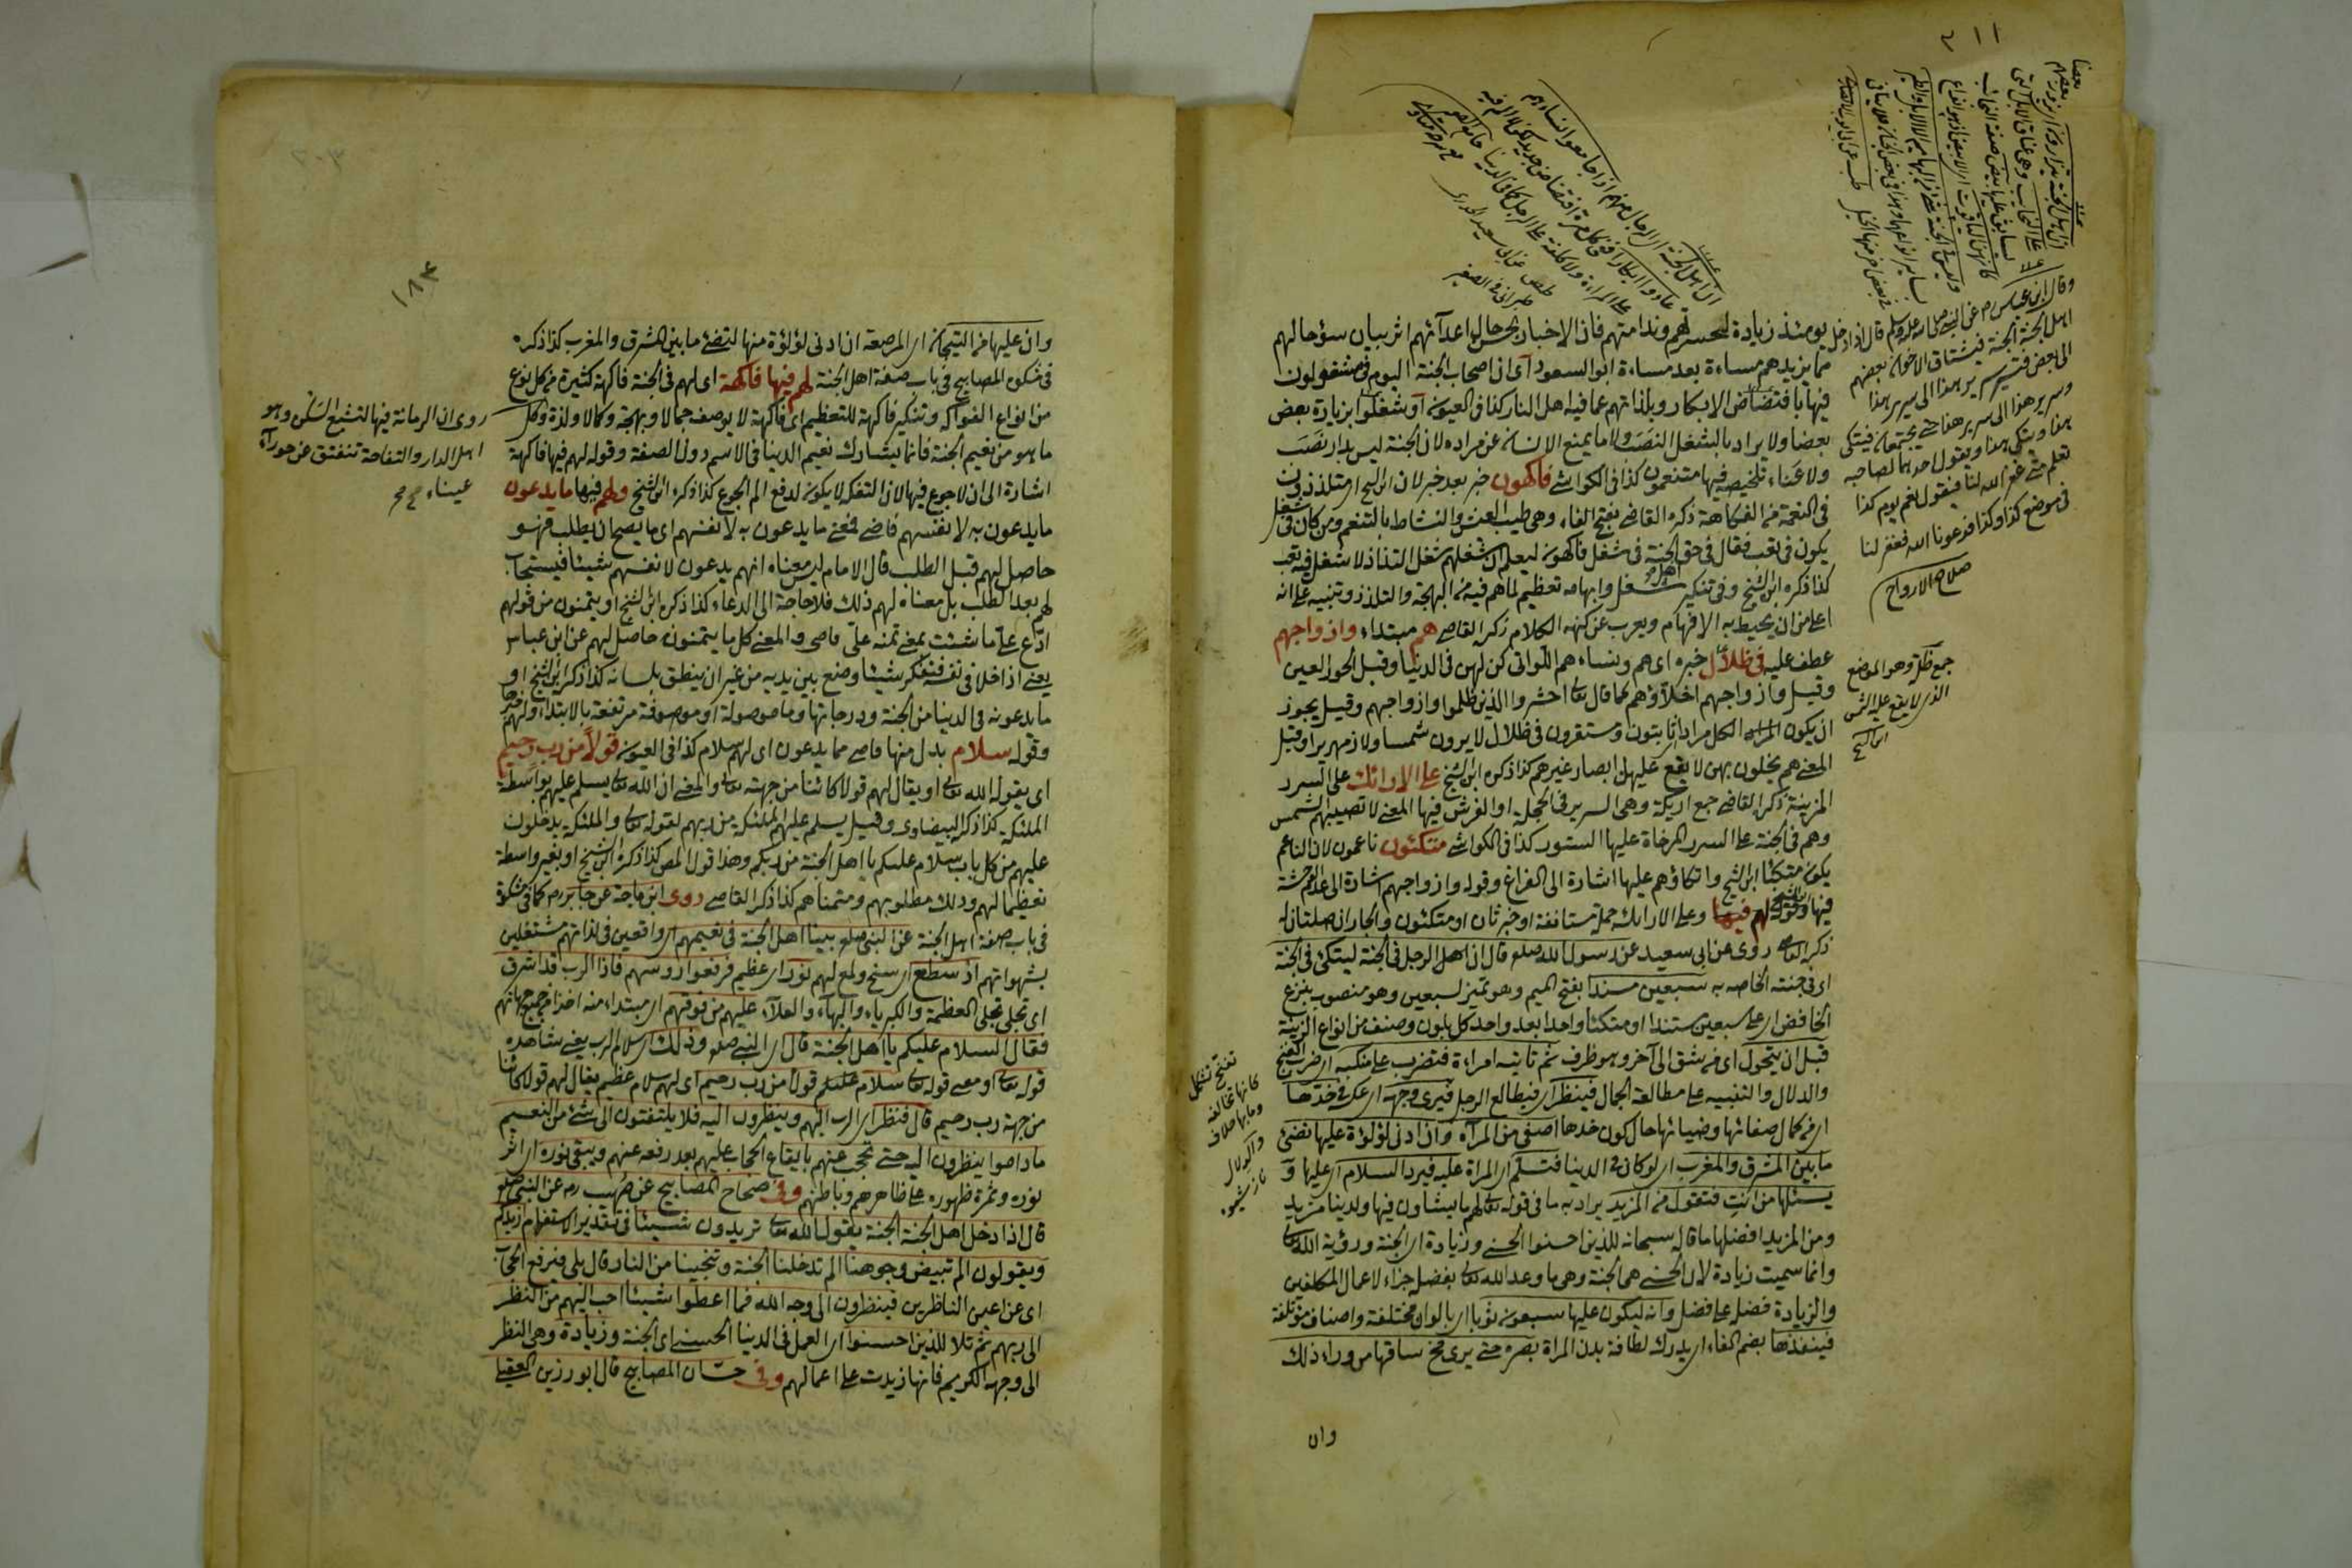 يومئذ زيادة لتحسرهم وندامتهم فان الاخبار بحسن حال اعدآئهم اثر بيان سؤ حالهم
مما يزيدهم مساءة بعد مساءة ابو السعود اى ان اصحاب الجنة اليوم فى شغل مشغولون
فيها بافتضاض الابكار وبلذاتهم عما فيه اهل النار كذا فى العيون او شغلوا بزيارة بعض
بعضا ولا يراد بالشغل النصب ولا ما يمنع الانسان عن مراده لان الجنة ليس بدار نصب
ولا عناء تلخيصه فيها متنعمون كذا فى الكواشى فاكهون خبر بعد خبر لان ابن الشيخ اى متلذذون
فى النعمة من الفكاهة ذكره القاضى بفتح الفاء وهى طيب العيش والنشاط بالتنعم ومن كان فى شغل
يكون فى تعب فقال فى حق اهل الجنة فى شغل فاكهون ليعلم ان شغلهم شغل التذاذ لا شغل فيه تعب
كذا ذكره ابن الشيخ وفى تنكير شغل وابهامه تعظيم لما هم فيه من البهجة والتلذذ وتنبيه على انه
اعلى من ان يحيط به الافهام ويعرب عن كنهه الكلام ذكره القاضى هم مبتداء وازواجهم
عطف عليه فى ظلال خبره اى هم ونساءهم اللواتى كن لهن فى الدنيا وقيل الحور العين
وقيل وازواجهم اخلاؤهم كما قال تعالى احشروا الذين ظلموا وازواجهم وقيل يجوز
ان يكون الكل مرادا ثابتون ومستقرون فى ظلال لا يرون شمسا ولا زمهريرا وقيل
المعنى هم يخلون بهن لا يقع عليهن ابصار غيرهم كذا ذكره ابن الشيخ على الارائك على السرر
المزينة ذكره القاضى جمع اريكة وهى السرير فى الحجلة او الفرش فيها المعنى لا تصيبهم الشمس
وهم فى الجنة على السرر المرخاة عليها الستور كذا فى الكواشى متكئون ناعمون لان الناعم
يكون متكئا ابن الشيخ واتكاؤهم عليها اشارة الى الفراغ وقوله وازواجهم اشارة الى عدم الوحشة
فيها وقوله لهم فيها وعلى الارائك جملة مستانفة او خبر ثان او متكئون والجاران صلتان له
ذكره القاضى روى عن ابى سعيد عن رسول الله صلعم قال ان اهل الرجل فى الجنة ليتكئ فى الجنة
اى فى جنته الخاصه به سبعين مسندا بفتح الميم وهو تميز لسبعين وهو منصوب بنزع
الخافض اى على سبعين مسندا او متكئا واحدا بعد واحد كل بلون وصنف من انواع الزينة
قبل ان يتحول اى من شق الى آخر وهو ظرف ثم تاتيه امراءة فتضرب على منكبيه اى ضرب الغنج
والدلال والتنبيه على مطالعة الجمال فينظر اى فيطالع الرجل فيرى وجهه اى عكسه فى خدها
اى من كمال صفائها وضيائها حال كون خدها اصفى من المرآة وان ادنى لؤلؤة عليها تضئ
ما بين المشرق والمغرب اى لو كان فى الدنيا فتسلم اى المراة عليه فيرد السلام اى عليها و
يسئلها من انت فتقول من المزيد يراد به ما فى قوله تعالى لهم ما يشاؤن فيها ولدينا مزيد
ومن المزيد افضلها ما قال سبحانه للذين احسنوا الحسنى وزيادة اى الجنة ورؤية الله تعالى
وانما سميت زيادة لان الحسنى هى الجنة وهى ما وعد الله تعالى بفضل جزاء لاعمال المكلفين
والزيادة فضل على فضل وانه ليكون عليها سبعون ثوبا اى بالوان مختلفة واصناف مؤتلفة
فينفذها بضم الفاء اى يدرك لطافة بدن المراة بصره حتى يرى مخ ساقها من وراء ذلك
وان
وقال ابن عباس رض عن النبى صلى الله عليه وسلم قال اذا دخل
اهل الجنة الجنة فيشتاق الاخوان بعضهم
الى بعض فيسير سرير هذا الى سرير هذا
وسرير هذا الى سرير هذا حتى يجتمعان فيتكى
هذا ويتكى هذا ويقول احدهما لصاحبه
تعلم متى غفر الله لنا فيقول نعم يوم كذا
فى موضع كذا وكذا فدعونا الله فغفر لنا
صلاح الارواح
جمع ظل وهو الموضع
الذى لا يقع عليه الشمس
ابن الشيخ
ان اهل الجنة اى الرجال منهم اذا جامعوا نساءهم
عادوا ابكارا
طص عن ابى سعيد الخدرى
طبرانى فى الصغير
١٨٣
وان عليها من التيجان اى المرصعة ان ادنى لؤلؤة منها لتضئ ما بين المشرق والمغرب كذا ذكره
فى مشكوة المصابيح فى باب صفة اهل الجنة لهم فيها فاكهة اى لهم فى الجنة فاكهة كثيرة من كل نوع
من انواع الفواكه وتنكير فاكهة للتعظيم اى فاكهة لا يوصف جمالا وبهجة وكمالا ولذة وكل
ما هو من نعيم الجنة فانما يشارك نعيم الدنيا فى الاسم دون الصفة وقوله لهم فيها فاكهة
اشارة الى ان لا جوع فيها لان التفكه لا يكون لدفع الم الجوع كذا ذكره ابن الشيخ ولهم فيها ما يدعون
ما يدعون به لانفسهم قاضى فمعنى ما يدعون به لانفسهم اى ما يصح ان يطلب فهو
حاصل لهم قبل الطلب قال الامام ليس معناه انهم يدعون لانفسهم شيئا فيستجاب
لهم بعد الطلب بل معناه لهم ذلك فلا حاجة الى الدعاء كذا ذكره ابن الشيخ او يتمنون من قولهم
ادع على ما شئت بمعنى تمنه على قاضى والمعنى كل ما يتمنون حاصل لهم عن ابن عباس
يعنى اذا خلا فى نفسه فتفكر شيئا وضع بين يديه من غير ان ينطق بلسانه كذا ذكره ابن الشيخ او
ما يدعونه فى الدنيا من الجنة ودرجاتها وما موصولة او موصوفة مرتفعة بالابتداء ولهم خبرها
وقوله سلام بدل منها قاضى مما يدعون اى لهم سلام كذا فى العيون قولا من رب رحيم
اى يقوله الله تعالى او يقال لهم قولا كائنا من جهته تعالى والمعنى ان الله تعالى يسلم عليهم بواسطة
الملئكة كذا ذكره البيضاوى وقيل يسلم عليهم الملئكة من ربهم لقوله تعالى والملئكة يدخلون
عليهم من كل باب سلام عليكم يا اهل الجنة من ربكم وهذا قول المص كذا ذكره ابن الشيخ او بغير واسطة
تعظيما لهم وذلك مطلوبهم ومتمناهم كذا ذكره القاضى روى ابن ماجة عن جابر رض كما فى مشكوة
فى باب صفة اهل الجنة عن النبى صلعم بينا اهل الجنة فى نعيمهم اى واقعين فى لذاتهم مشتغلين
بشهواتهم اذ سطع اى سنح ولمع لهم نور اى عظيم فرفعوا رؤسهم فاذا الرب قد اشرق
اى تجلى تجلى العظمة والكبرياء والبهاء والعلاء عليهم من فوقهم اى مبتداء منه اخذا من جميع جهاتهم
فقال السلام عليكم يا اهل الجنة قال اى النبى صلعم وذلك اى سلام الرب يعنى شاهده
قوله تعالى او معنى قوله تعالى سلام عليكم قولا من رب رحيم اى لهم سلام عظيم يقال لهم قولا كائنا
من جهة رب رحيم قال فنظر اى الرب اليهم وينظرون اليه فلا يلتفتون الى شئ من النعيم
ما داموا ينظرون اليه حتى يحجب عنهم بايقاع الحجاب عليهم بعد رفعه عنهم ويبقى نوره اى اثر
نوره وثمرة ظهوره على ظاهرهم وباطنهم وفى صحاح المصابيح عن صهيب رض عن النبى صلعم
قال اذا دخل اهل الجنة الجنة يقول الله تعالى تريدون شيئا فى تقدير الاستفهام ازيدكم
ويقولون الم تبيض وجوهنا الم تدخلنا الجنة وتنجينا من النار قال بلى فيرفع الحجاب
اى عن اعين الناظرين فينظرون الى وجه الله فما اعطوا شيئا احب اليهم من النظر
الى ربهم ثم تلا للذين احسنوا اى العمل فى الدنيا الحسنى اى الجنة وزيادة وهى النظر
الى وجهه الكريم فانها زيدت على اعمالهم وفى حسان المصابيح قال ابو رزين العقيلى
روى ان الرمانة فيها لتشبع السكن وهو
اهل الدار والتفاحة تنفتق عن حوراء
عيناء